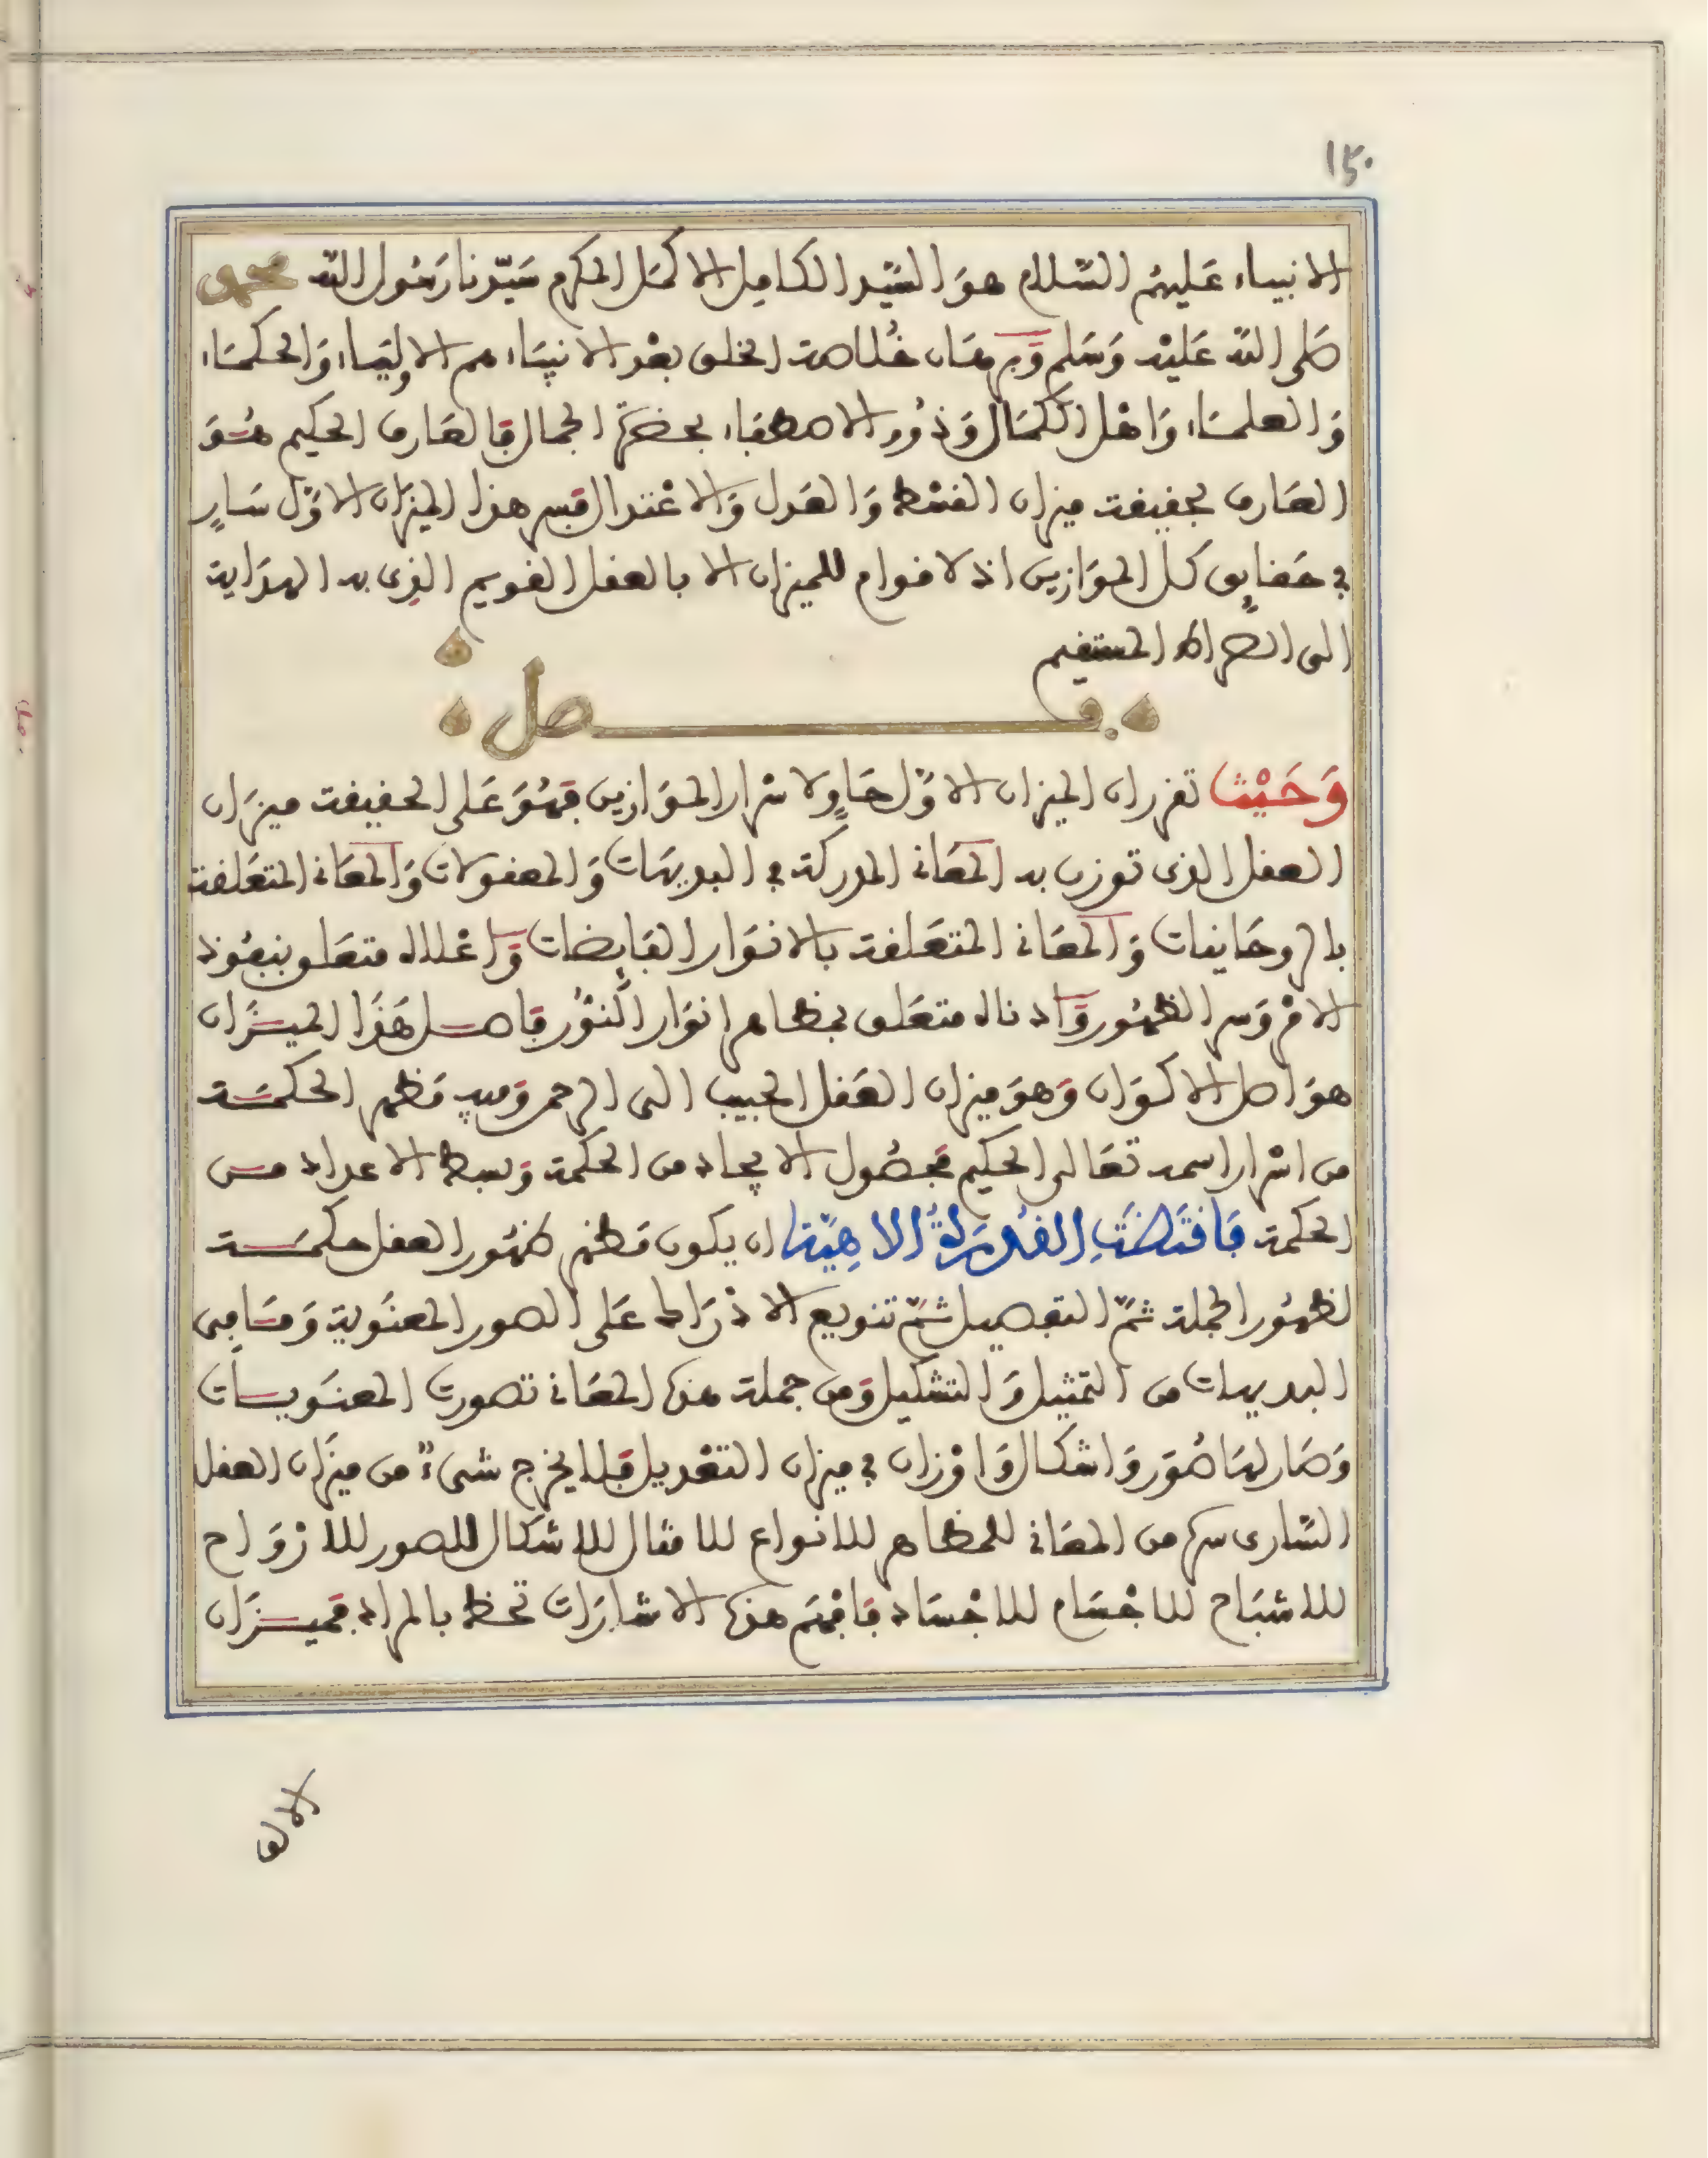 ١٤٠
الانبياء عَليهُم السّلام هوَ السَّيّد الكامِل الاكمَل المكرم سَيّدنا رَسُول الله محمد
صَلى الله عَليْه وَسَلم وَبرهَان خُلاصة الخلق بعْد الانبيَاء هم الاوليَاء وَالحكمَاء
وَالعلمَاء وَاهْل الكمَال وَذوُو الاصطفاء بحضرَة الجمال فالعَارف الحكيم هُوَ
العَارف بحقيقة ميزان القسْط وَالعَدل وَالاعْتدال فسر هذا الميزَان الاوّل سَارٍ
في حَقايق كل الموَازين اذ لا قوام للميزان الا بالعقل القويم الذى به الهدَاية
الى الصراط المستقيم
فصل
وَحَيْث تقرر ان الميزان الاوّل حَاوٍ لاسْرار الموَازين فهُوَ عَلى الحقيقة ميزَان
العقل الذى توزن به المعَانى المدركة في البديهَات وَالمعقولات وَالمعَانى المتعَلقة
بالروحَانيات وَالمعَانى المتعَلقة بالانوَار الفايضات وَاعْلاه متعَلق بنفُوذ
الامْر وَسر الظهُور وَادناه متعَلق بمظاهر انوَار النوُّر فاصل هَذَا الميزَان
هوَ اصل الاكوَان وَهوَ ميزان العَقل الحبيب الى الرحمن وَفيه مَظهر الحكمَة
من اسْرار اسمه تعَالى الحكيم فحصُول الايجاد من الحكمة وَبسط الاعداد من
الحكمة فَاقتَضَتِ القُدرَةُ الالاهِيّة ان يكون مَظهر ظهُور العقل حكمَة
لظهُور الجملة ثمَّ التفصيل ثمَّ تنويع الادْرَاك عَلى الصور المعنَوية وَمَا في
البديهات من التمثيل وَالتشكيل وَمن جملة هذه المعَانى تصورت المعنَويات
وَصَار لهَا صُوَر وَاشكال وَاوْزان في ميزان التعْديل فلا يخرج شىءٌ من ميزَان العقل
السَّارى سره من المعَانى للمظاهر للانواع للامثال للاشكال للصور للارْوَاح
للاشبَاح للاجْسَام للاجْسَاد فافهَم هذه الاشارَات تحظ بالمراد فميزَان